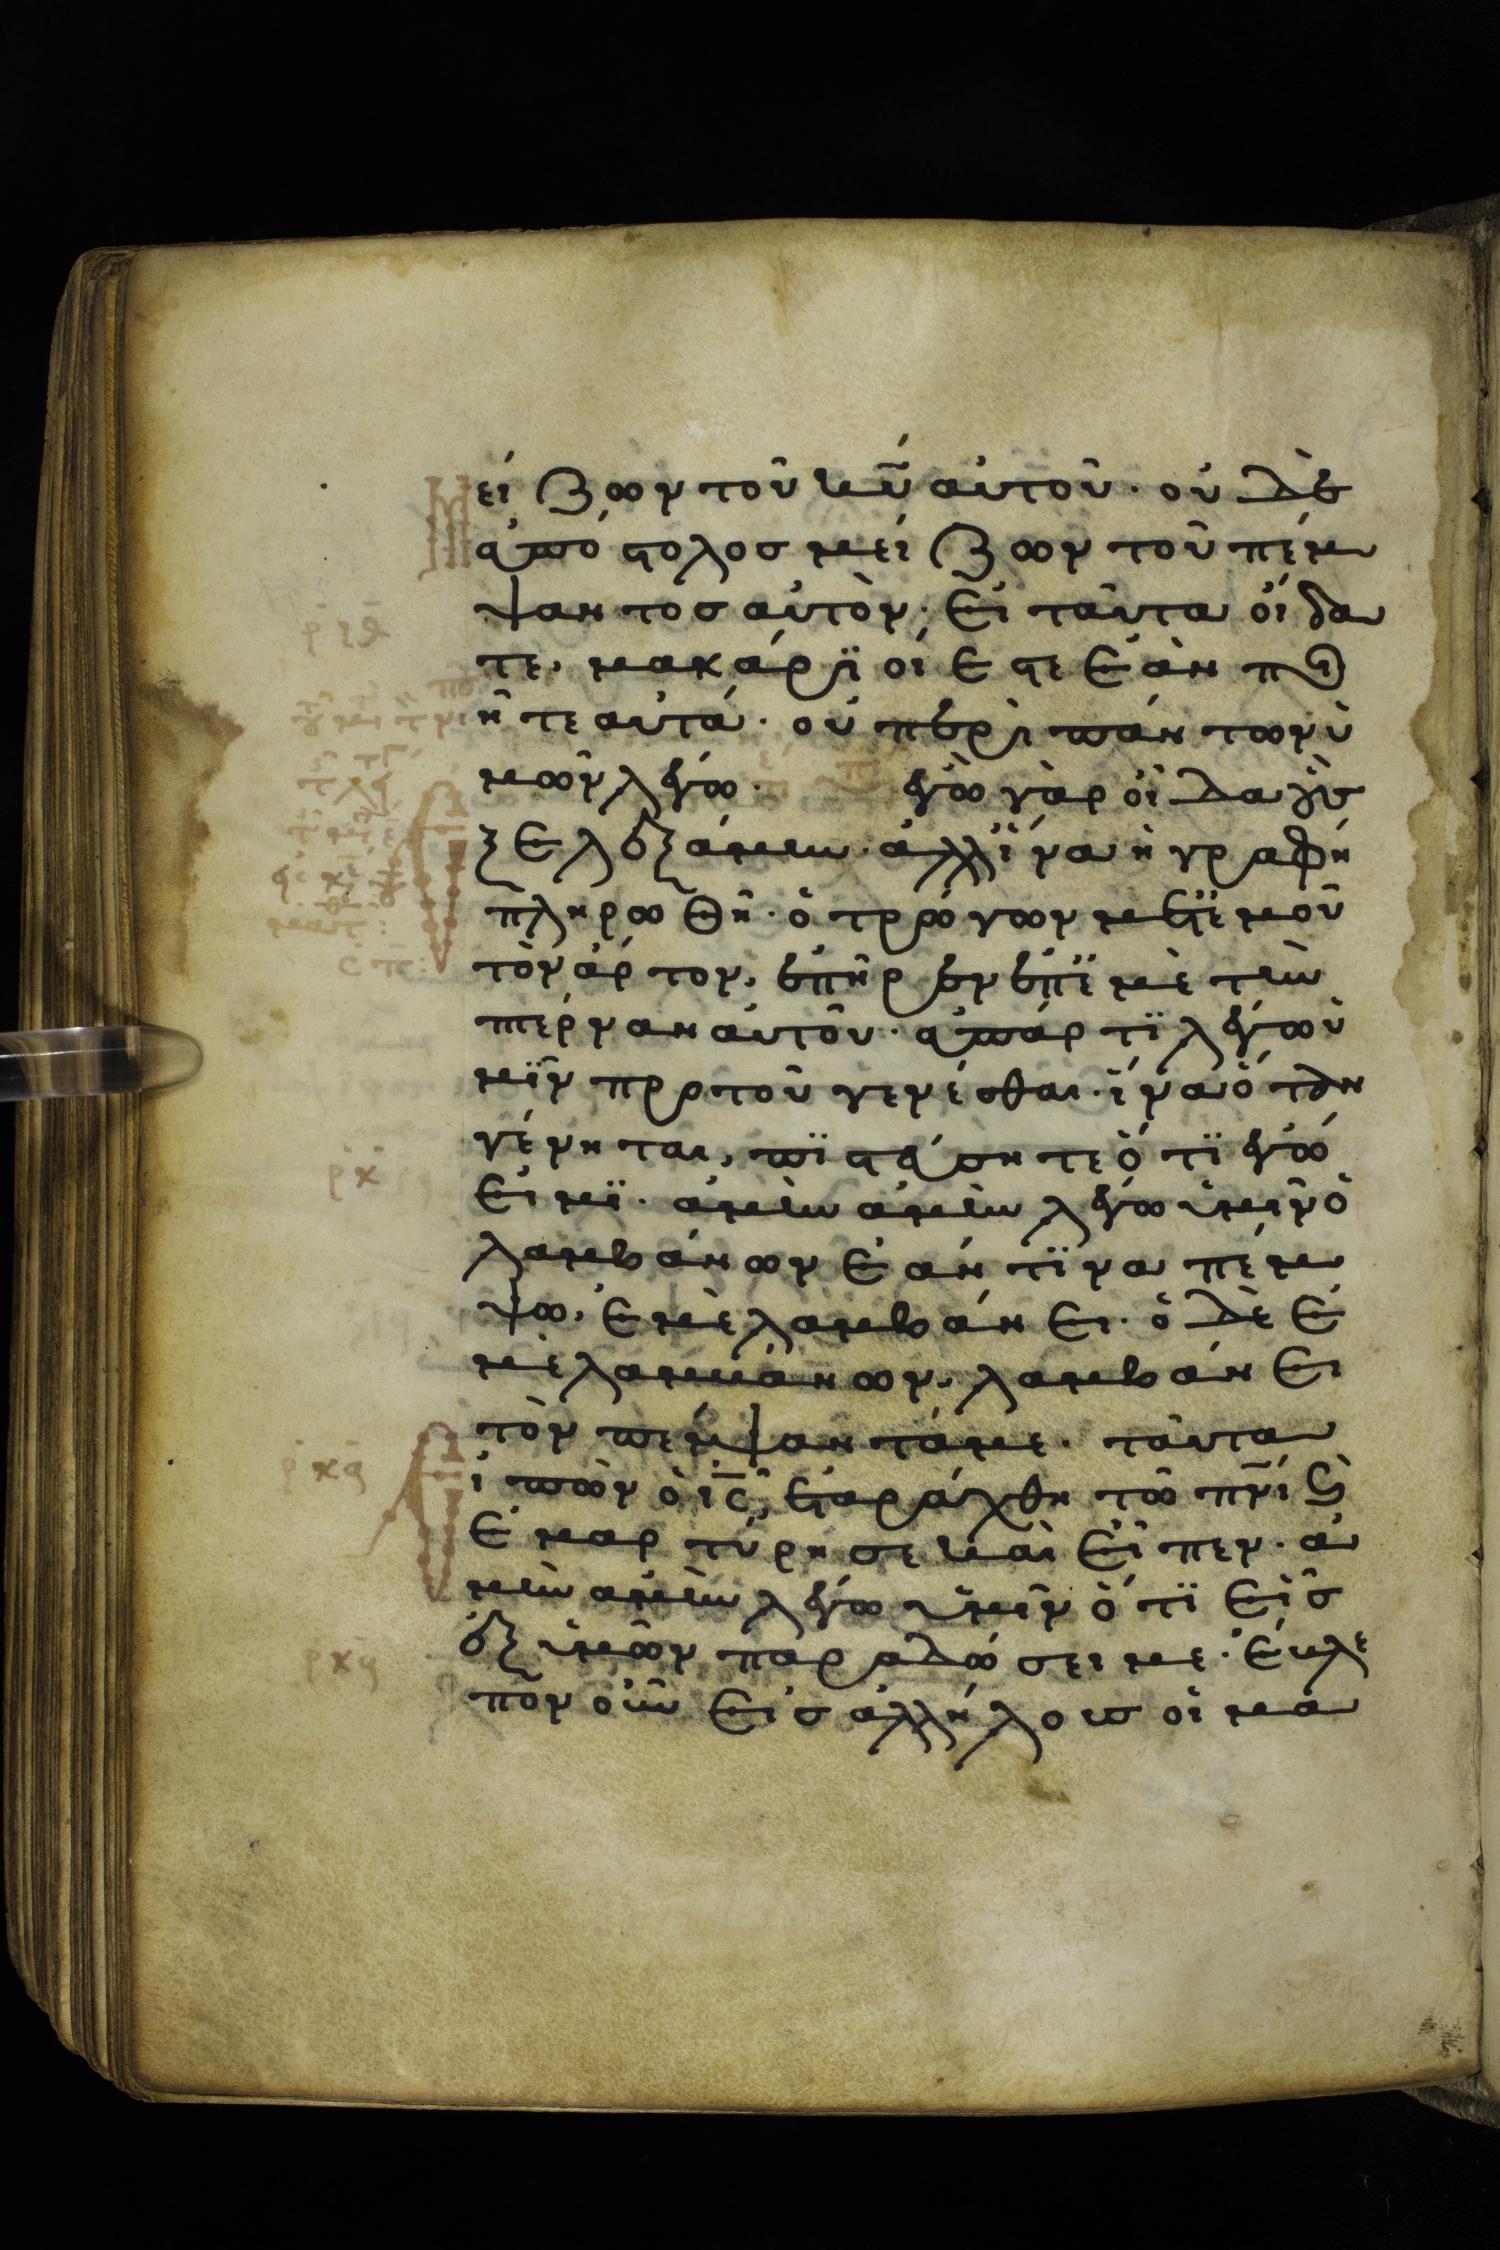 είζων τοῦ κῡ αὐτοῦ· οὐδὲ
ἀπόστολος μείζων τοῦ πέμ
ψαντος αὐτὸν· εἰ ταῦτα οἴδα
τε, μακάριοί ἐστε ἐὰν ποι
ῆτε αὐτά· οὐ περὶ πάντων ὑ
μῶν λέγω· ἐγὼ γὰρ οἶδα οὓς
ἐξελεξάμην· ἀλλ' ἵνα ἡ γραφὴ
πληρωθῆ· ὁ τρώγων μετ' ἐμοῦ
τὸν ἄρτον, ἐπῆρεν ἐπ' ἐμὲ τὴν
πτέρναν αὐτοῦ· ἀπάρτι λέγω ὑ
μῖν πρὸ τοῦ γενέσθαι· ἵνα ὅταν
γένηται, πιστεύσητε ὅτι ἐγώ
εἰμι· ἀμὴν ἀμὴν λέγω ὑμῖν ὁ
λαμβάνων ἐάν τινα πέμ
ψω, ἐμὲ λαμβάνει· ὁ δὲ ἐ
μὲ λαμβάνων, λαμβάνει
τὸν πέμψαντά με· ταῦτα
εἰπὼν ὁ ις̅, ἐταράχθη τῶ πνι̅ ϗ
ἐμαρτύρησε καὶ εἶπεν· ἀ
μὴν ἀμὴν λέγω ὑμῖν ὅτι εἷς
ἐξ ὑμῶν παραδώσει με· ἔβλε
πον οὖν εἰς ἀλλήλους οἱ μα
ριθ
ρκ
ρκα
ρκβ